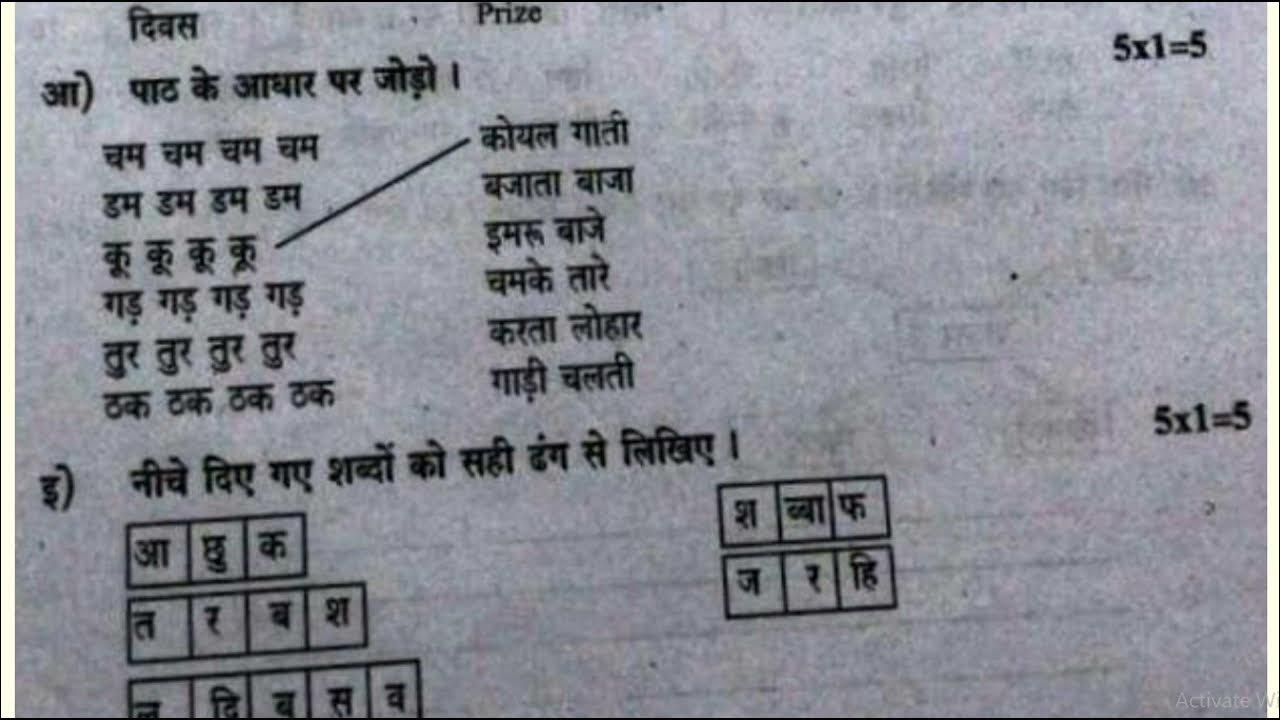 दिवस Prize
आ) पाठ के आधार पर जोड़ो । 5x1=5
चम चम चम चम कोयल गाती
डम डम डम डम बजाता बाजा
कू कू कू कू इमरू बाजे
गड़ गड़ गड़ गड़ चमके तारे
तुर तुर तुर तुर करता लोहार
ठक ठक ठक ठक गाड़ी चलती
इ) नीचे दिए गए शब्दों को सही ढंग से लिखिए । 5x1=5
आ छु क श ब्बा फ
त र ब श ज र हि
ल दि ब स व
Activate W